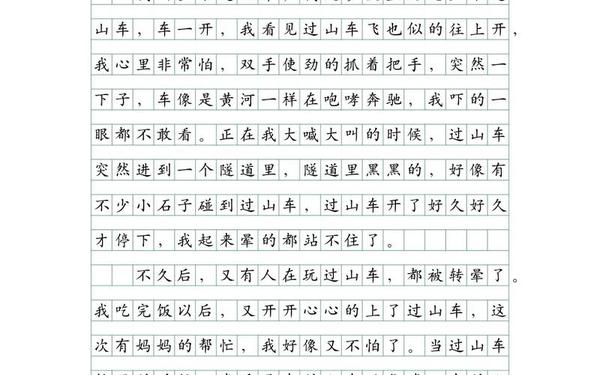 山车，车一开，我看见过山车飞也似的往上开，
我心里非常怕，双手使劲的抓着把手，突然一
下子，车像是黄河一样在咆哮奔驰，我吓的一
眼都不敢看。正在我大喊大叫的时候，过山车
突然进到一个隧道里，隧道里黑黑的，好像有
不少小石子碰到过山车，过山车开了好久好久
才停下，我起来晕的都站不住了。
不久后，又有人在玩过山车，都被转晕了。
我吃完饭以后，又开开心心的上了过山车，这
次有妈妈的帮忙，我好像又不怕了。当过山车